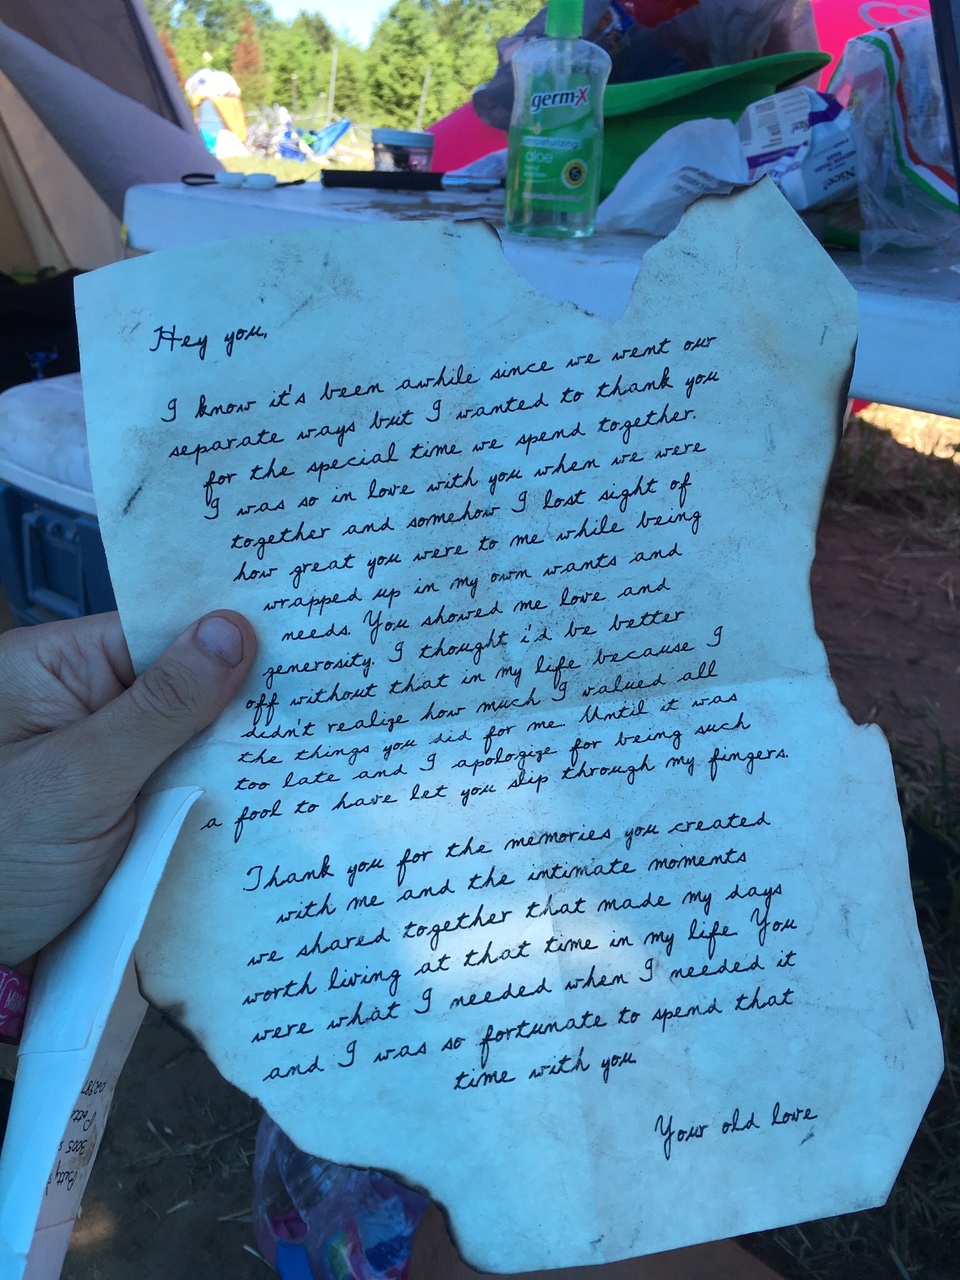 germ-x
moisturizing
aloe
15
Nice!
Hey you,
I know it's been awhile since we went our
separate ways but I wanted to thank you
for the special time we spend together.
I was so in love with you when we were
together and somehow I lost sight of
how great you were to me while being
wrapped up in my own wants and
needs. You showed me love and
generosity. I thought i'd be better
off without that in my life because I
didn't realize how much I valued all
the things you did for me Until it was
too late and I apologize for being such
a fool to have let you slip through my fingers.
Thank you for the memories you created
with me and the intimate moments
we shared together that made my days
worth living at that time in my life You
were what I needed when I needed it
and I was so fortunate to spend that
time with you
Your old love
3005